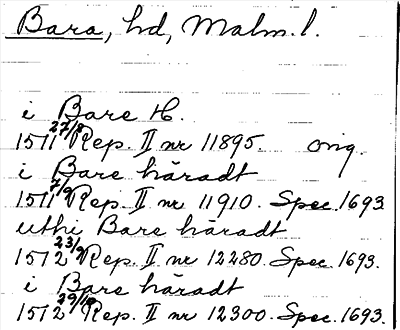 Bara, hd, Malm.l.
i Bare H.
1511 27/8 Rep. II nr 11895. orig.
i Bare häradt
1511 7/9 Rep. II nr 11910. Spec. 1693
uthi Bare häradt
1512 23/9 Rep. II nr 12280. Spec. 1693.
i Bare häradt
1512 29/10 Rep. II nr 12300. Spec. 1693.